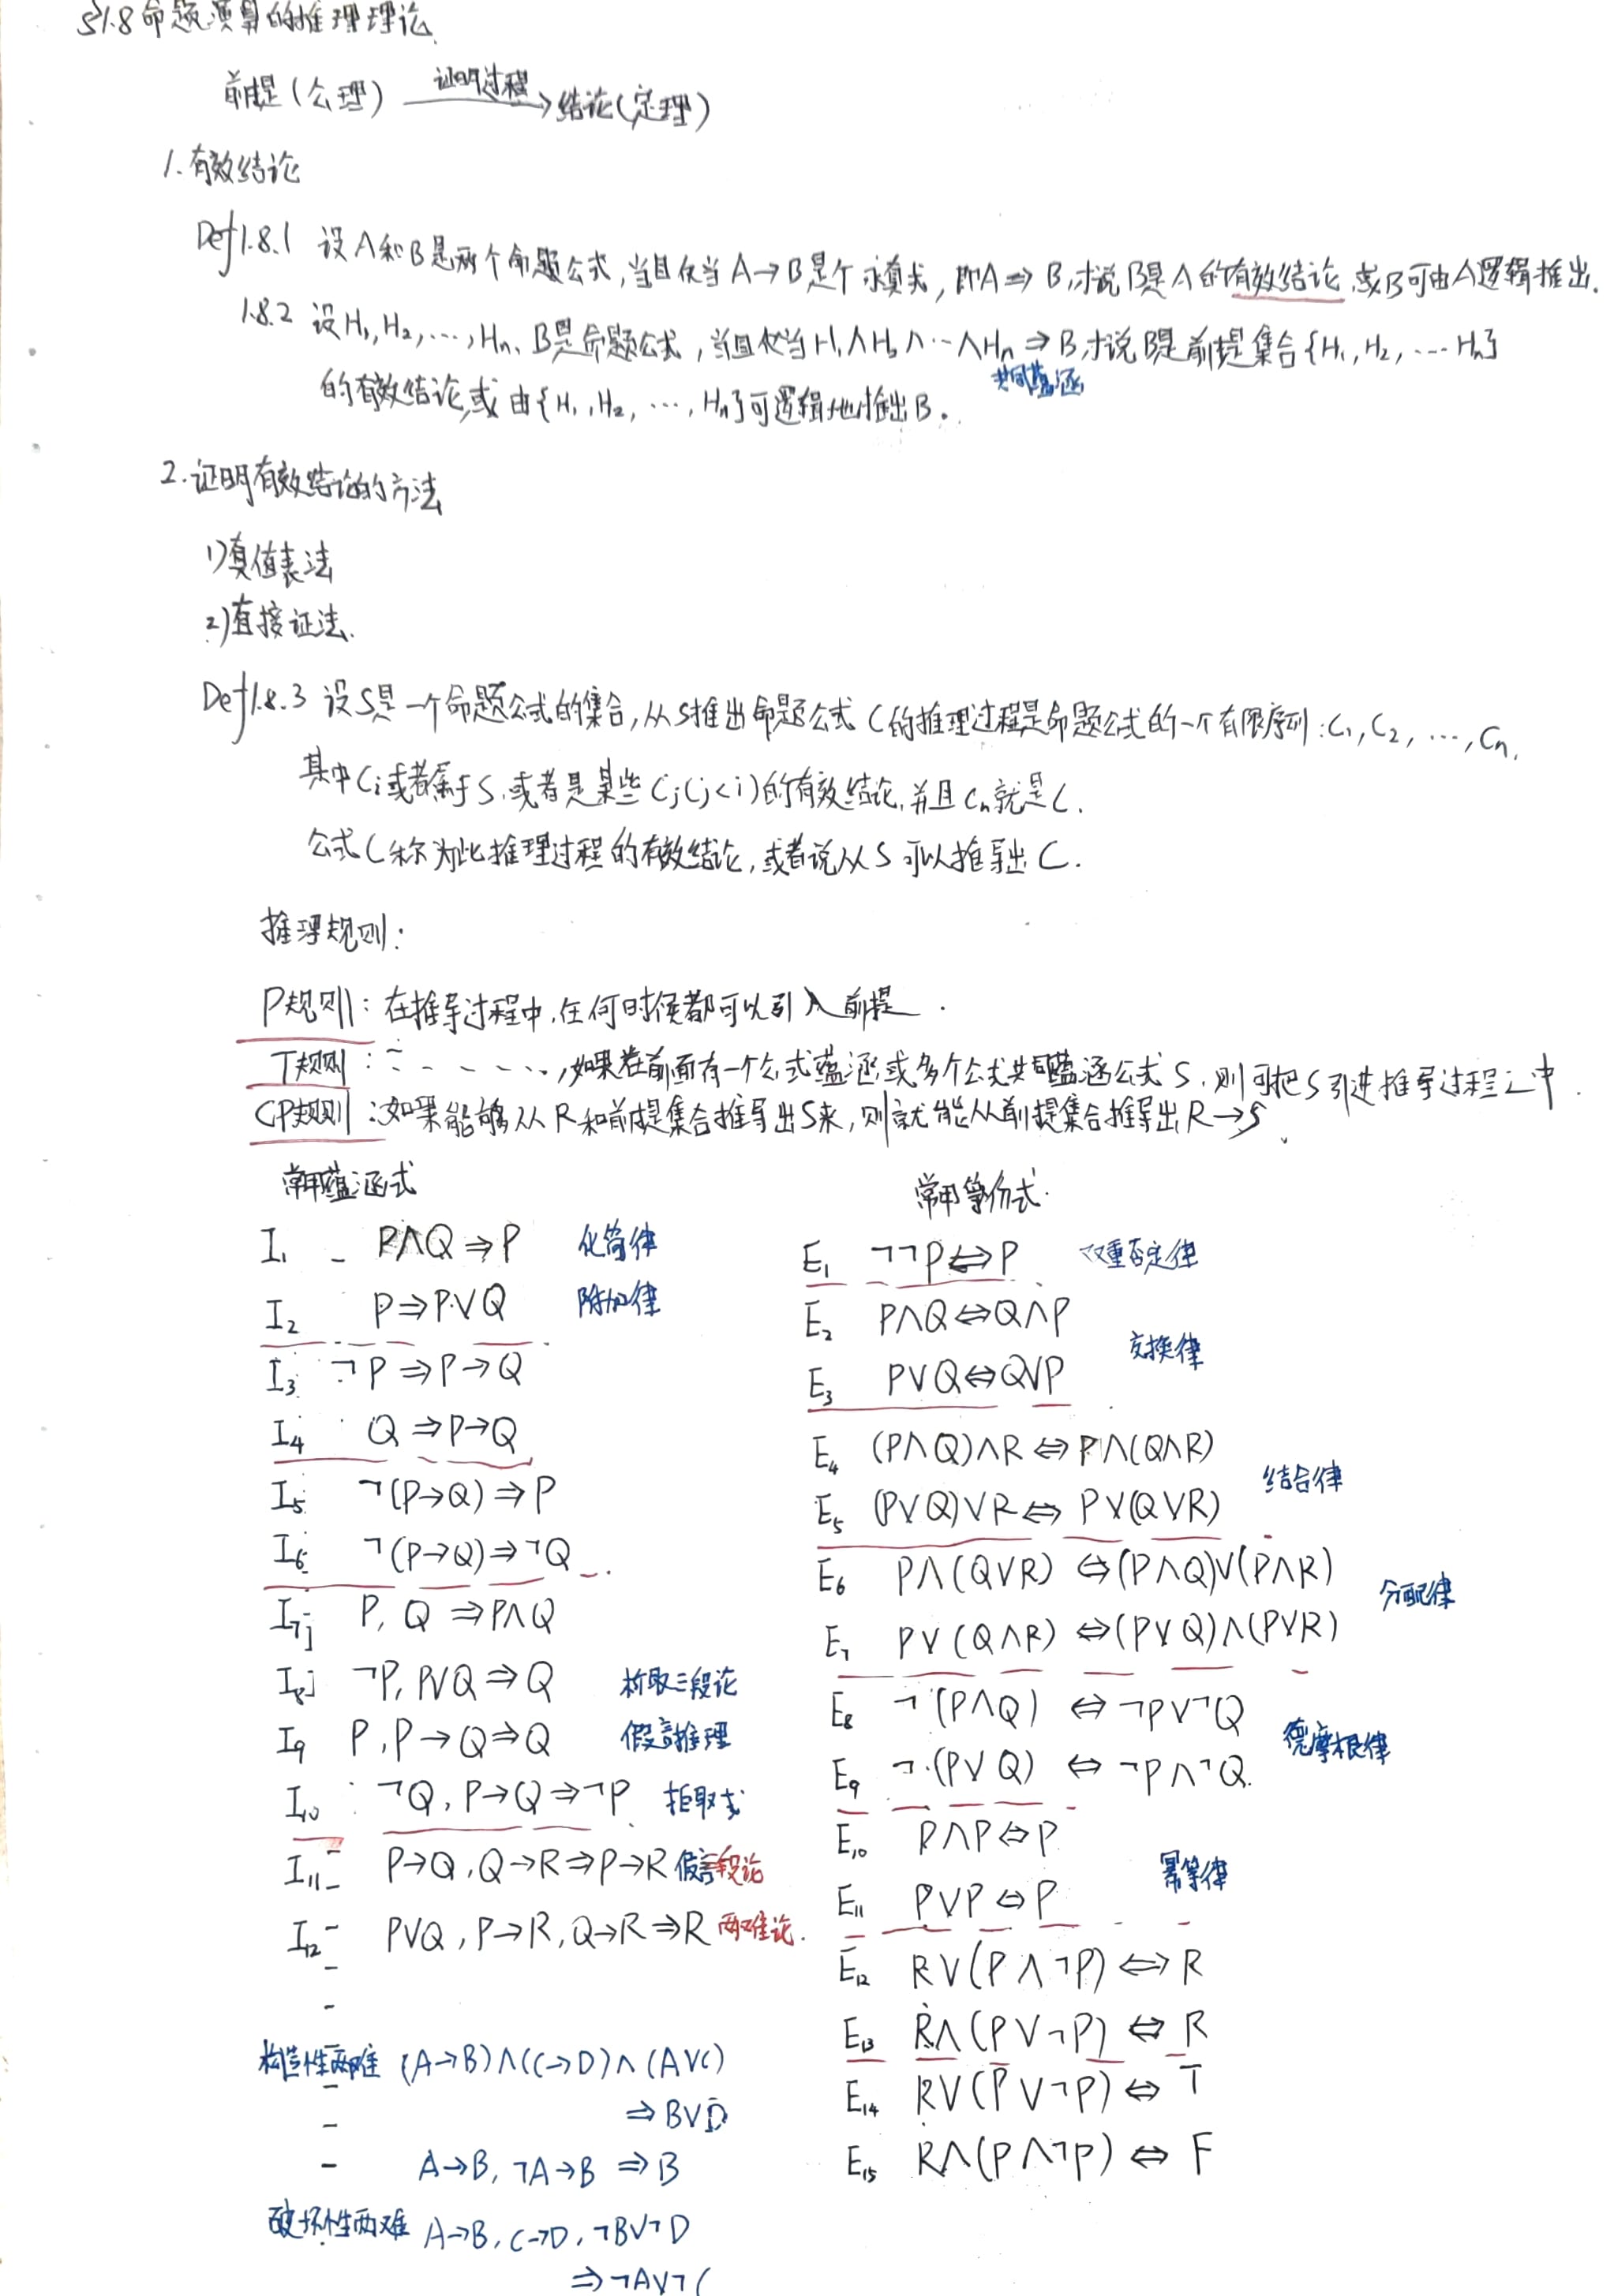 §1.8 命题演算的推理理论
前提(公理) 证明过程→ 结论(定理)
1.有效结论
Def1.8.1 设A和B是两个命题公式,当且仅当A→B是个永真式,即A⇒B,才说B是A的有效结论,或B可由A逻辑推出.
1.8.2 设H₁,H₂,…,Hn、B是命题公式,当且仅当H₁∧H₂∧…∧Hn⇒B,才说B是前提集合{H₁,H₂,…Hn}
共同蕴涵
的有效结论,或由{H₁,H₂,…,Hn}可逻辑地推出B.
2.证明有效结论的方法
1)真值表法
2)直接证法.
Def1.8.3 设S是一个命题公式的集合,从S推出命题公式C的推理过程是命题公式的一个有限序列:C₁,C₂,…,Cn,
其中Ci或者属于S,或者是某些Cj(j<i)的有效结论,并且Cn就是C.
公式C称为此推理过程的有效结论,或者说从S可以推导出C.
推理规则:
P规则:在推导过程中,任何时候都可以引入前提.
T规则:……,如果在前面有一个公式蕴涵或多个公式共同蕴涵公式S,则可把S引进推导过程之中.
CP规则:如果能够从R和前提集合推导出S来,则就能从前提集合推导出R→S.
常用蕴涵式
I₁ P∧Q⇒P 化简律
I₂ P⇒P∨Q 附加律
I₃ ¬P⇒P→Q
I₄ Q⇒P→Q
I₅ ¬(P→Q)⇒P
I₆ ¬(P→Q)⇒¬Q
I₇ P,Q⇒P∧Q
I₈ ¬P,P∨Q⇒Q 析取三段论
I₉ P,P→Q⇒Q 假言推理
I₁₀ ¬Q,P→Q⇒¬P 拒取式
I₁₁ P→Q,Q→R⇒P→R 假言三段论
I₁₂ P∨Q,P→R,Q→R⇒R 两难论.
构造性两难 (A→B)∧(C→D)∧(A∨C)
⇒B∨D
A→B,¬A→B⇒B
破坏性两难 A→B,C→D,¬B∨¬D
⇒¬A∨¬C
常用等价式
E₁ ¬¬P⇔P 双重否定律
E₂ P∧Q⇔Q∧P
交换律
E₃ P∨Q⇔Q∨P
E₄ (P∧Q)∧R⇔P∧(Q∧R)
结合律
E₅ (P∨Q)∨R⇔P∨(Q∨R)
E₆ P∧(Q∨R)⇔(P∧Q)∨(P∧R)
分配律
E₇ P∨(Q∧R)⇔(P∨Q)∧(P∨R)
E₈ ¬(P∧Q)⇔¬P∨¬Q
德摩根律
E₉ ¬(P∨Q)⇔¬P∧¬Q.
E₁₀ P∧P⇔P
幂等律
E₁₁ P∨P⇔P
E₁₂ R∨(P∧¬P)⇔R
E₁₃ R∧(P∨¬P)⇔R
E₁₄ R∨(P∨¬P)⇔T
E₁₅ R∧(P∧¬P)⇔F